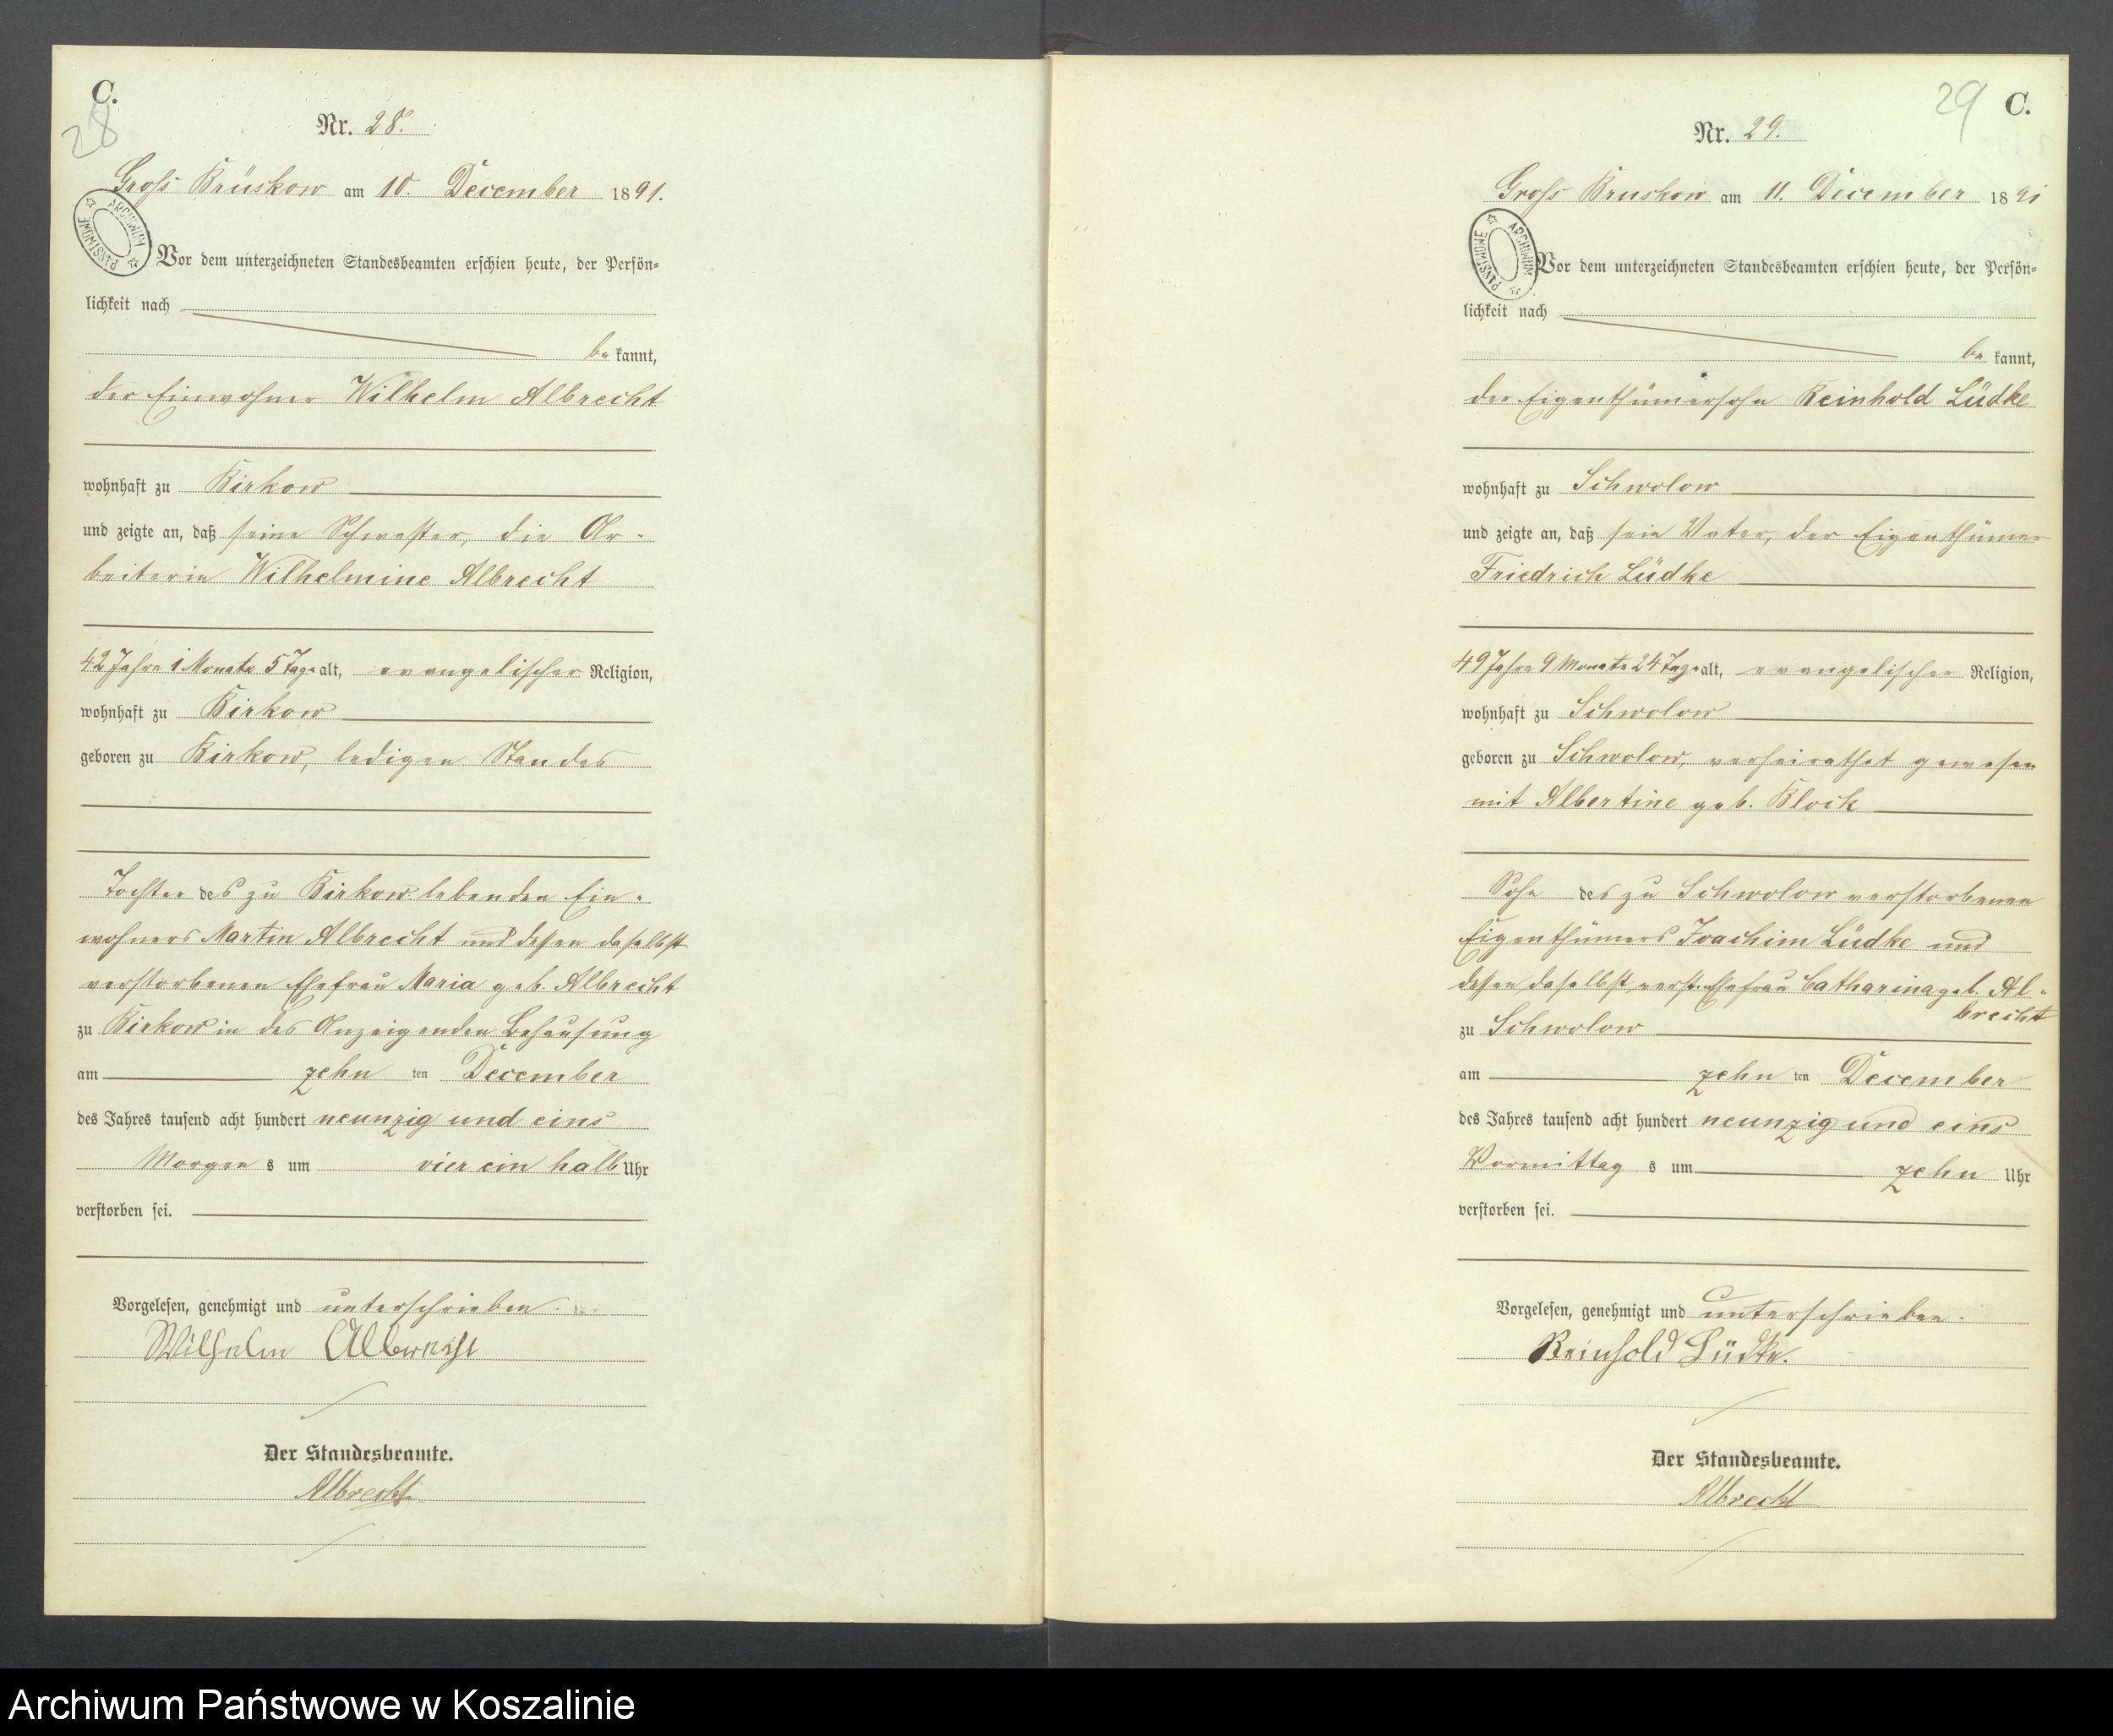 C.
28
Nr. 28.
Gross Krüskow am 10. December 1891.
ARCHIWUM PAŃSTWOWE
Vor dem unterzeichneten Standesbeamten erschien heute, der Persön-
lichkeit nach
be kannt,
der Einwohner Wilhelm Albrecht
wohnhaft zu Kirkow
und zeigte an, daß seine Schwester, die Ar-
beiterin Wilhelmine Albrecht
42 Jahre 1 Monate 5 Tage alt, evangelischer Religion,
wohnhaft zu Kirkow
geboren zu Kirkow, ledigen Standes
Tochter des zu Kirkow lebenden Ein-
wohners Martin Albrecht und dessen daselbst
verstorbenen Ehefrau Maria geb. Albrecht
zu Kirkow in des Anzeigenden Behausung
am zehn ten December
des Jahres tausend acht hundert neunzig und eins
Morgen s um vier ein halb Uhr
verstorben sei.
Vorgelesen, genehmigt und unterschrieben.
Wilhelm Albrecht
Der Standesbeamte.
Albrecht
29 C.
Nr. 29.
Gross Kruskow am 11. December 1891
ARCHIWUM PAŃSTWOWE
Vor dem unterzeichneten Standesbeamten erschien heute, der Persön-
lichkeit nach
be kannt,
der Eigenthümersohn Reinhold Lüdke
wohnhaft zu Schwolow
und zeigte an, daß sein Vater, der Eigenthümer
Friedrich Lüdke
49 Jahre 9 Monate 24 Tage alt, evangelischer Religion,
wohnhaft zu Schwolow
geboren zu Schwolow, verheirathet gewesen
mit Albertine geb. Klock
Sohn des zu Schwolow verstorbenen
Eigenthümers Joachim Lüdke und
dessen daselbst verst. Ehefrau Catharina geb. Al-
brecht
zu Schwolow
am zehn ten December
des Jahres tausend acht hundert neunzig und eins
Vormittag s um zehn Uhr
verstorben sei.
Vorgelesen, genehmigt und unterschrieben.
Reinhold Lüdke.
Der Standesbeamte.
Albrecht
Archiwum Państwowe w Koszalinie